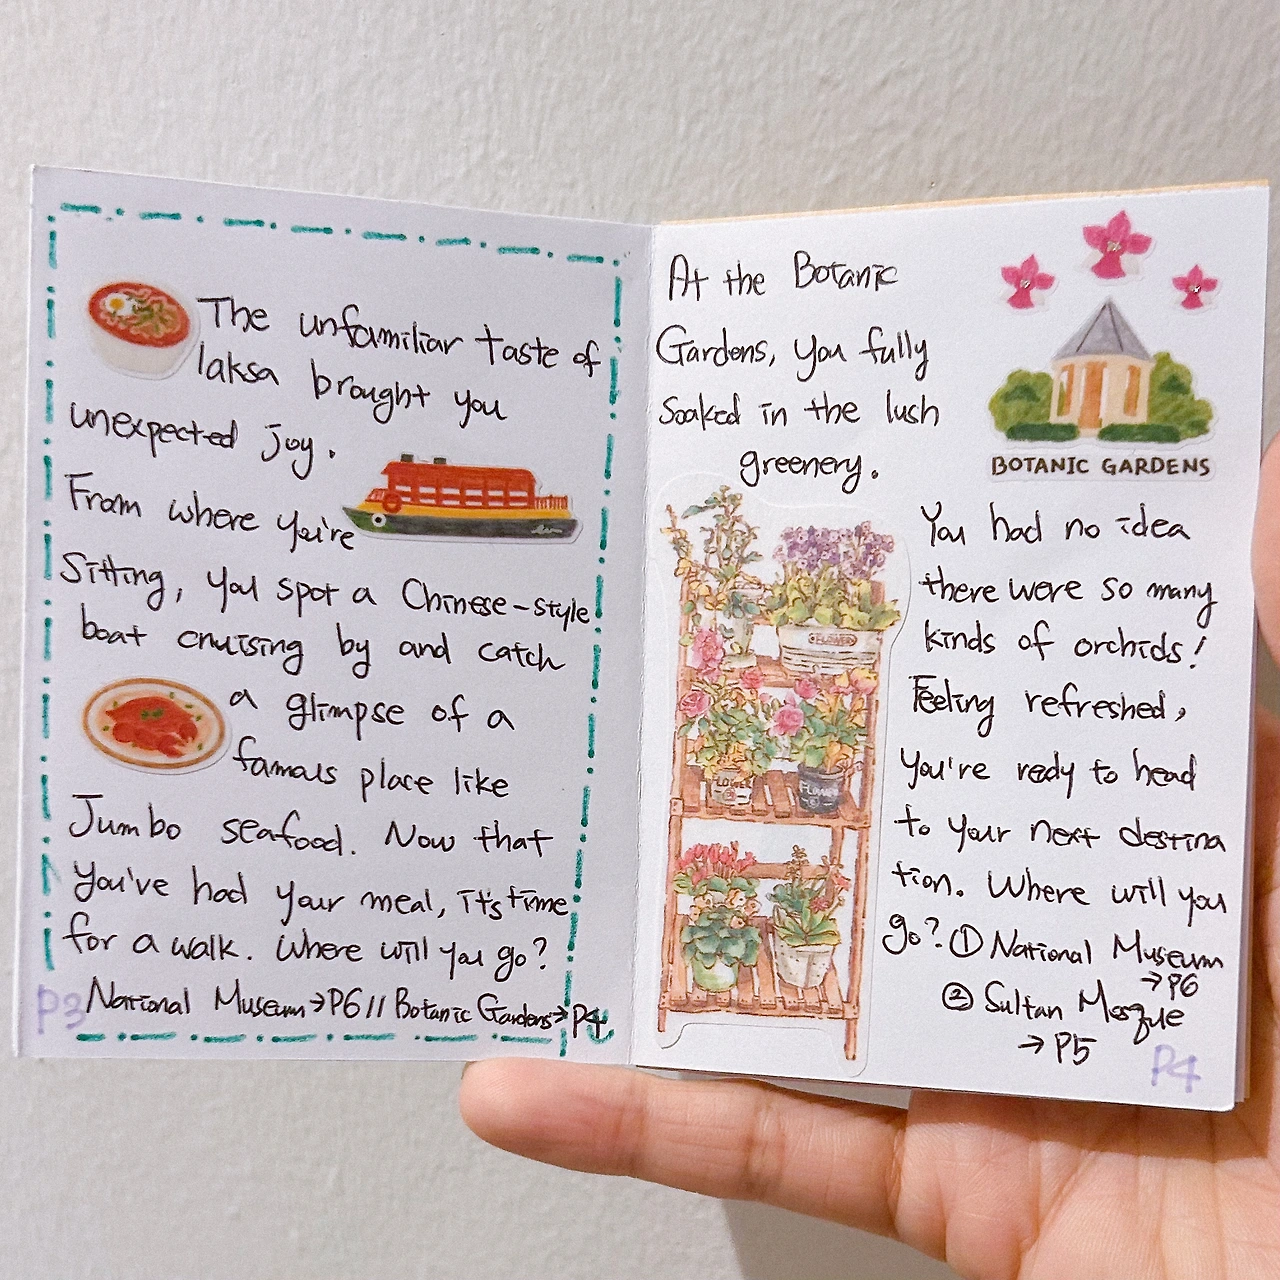 The unfamiliar taste of
laksa brought you
unexpected joy.
From where you're
Sitting, you spot a Chinese-style
boat cruising by and catch
a glimpse of a
famous place like
Jumbo seafood. Now that
you've had your meal, it's time
for a walk. Where will you go?
National Museum→P6 // Botanic Gardens→P4
P3
At the Botanic
Gardens, you fully
soaked in the lush
greenery.
BOTANIC GARDENS
FLOWER
FLOWER
FLOWER
You had no idea
there were so many
kinds of orchids!
Feeling refreshed,
you're ready to head
to your next destina
tion. Where will you
go? ① National Museum
→P6
② Sultan Mosque
→P5
P4